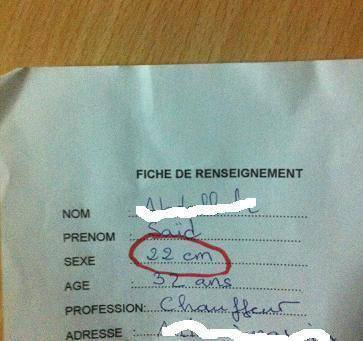 FICHE DE RENSEIGNEMENT
NOM
PRENOM : Saïd
SEXE : 22 cm
AGE : 32 ans
PROFESSION: Chauffeur
ADRESSE :